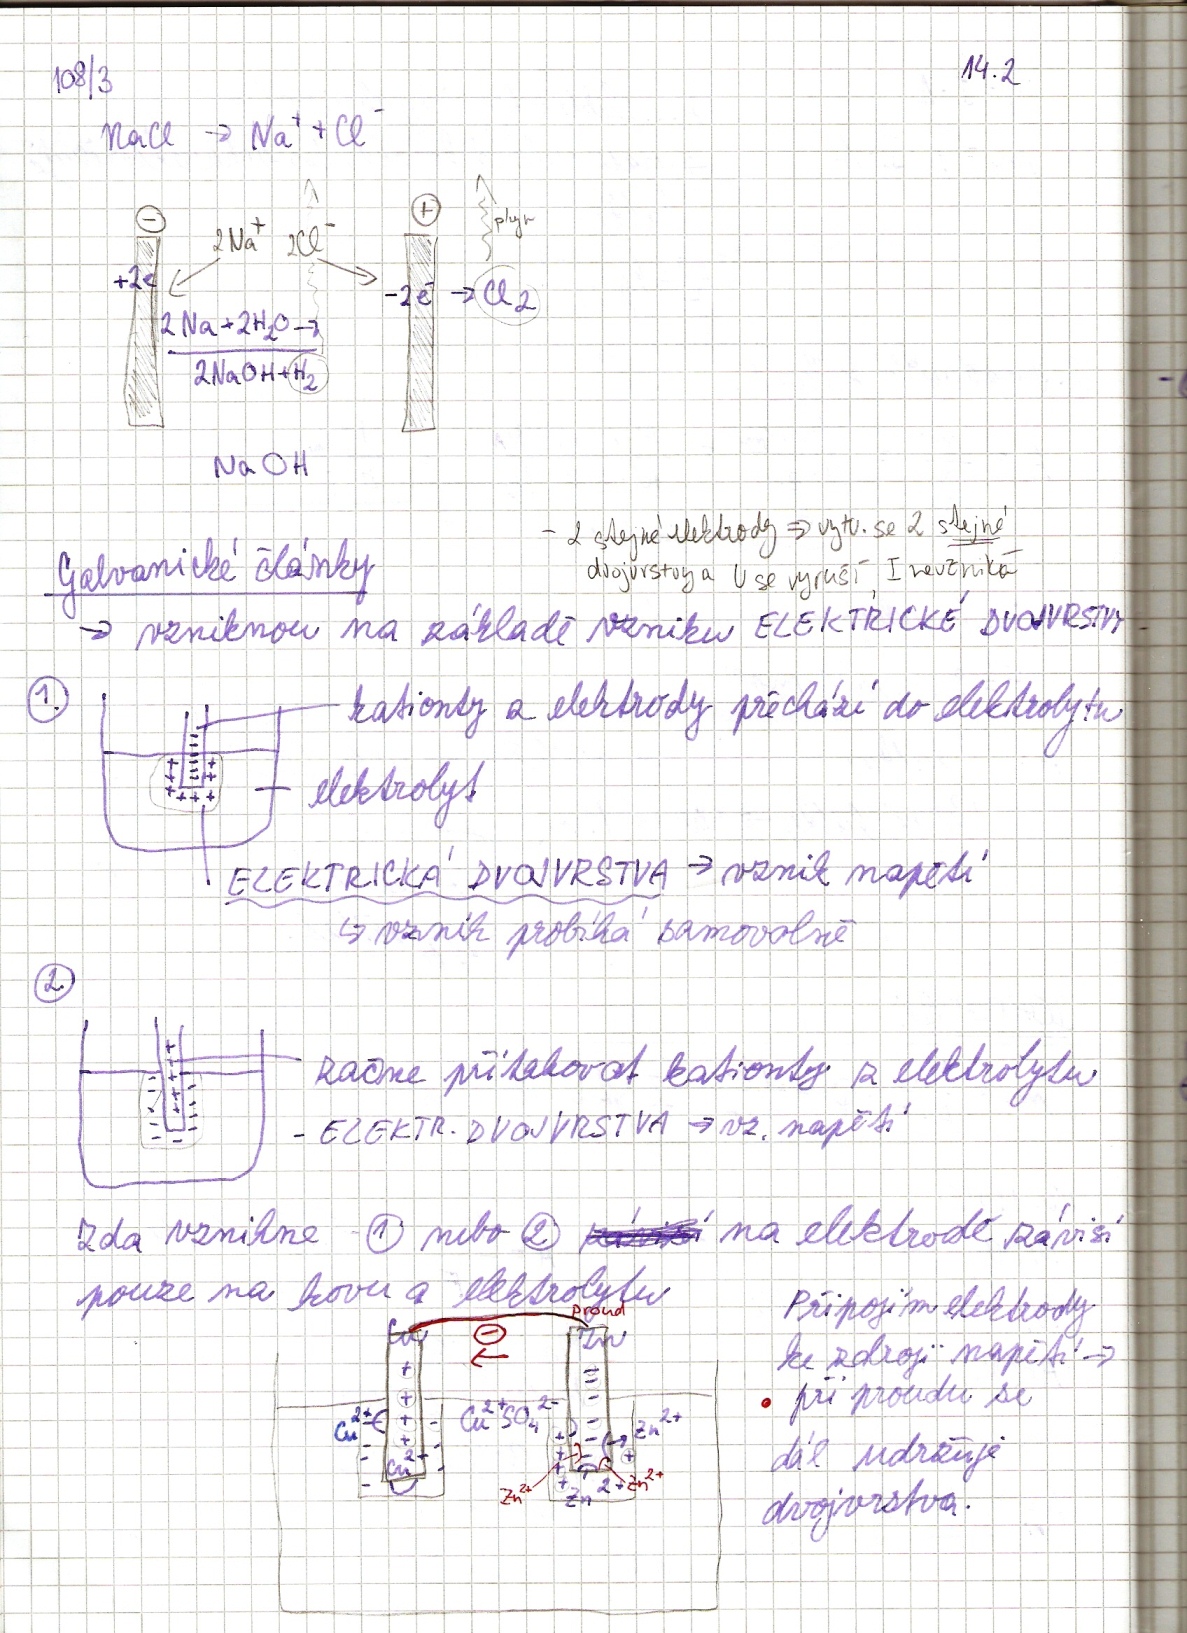 108/3
14.2
NaCl → Na⁺ + Cl⁻
⊖ 2Na⁺ 2Cl⁻ ⊕ plyn
+2e -2e⁻ → Cl₂
2Na+2H₂O →
2NaOH+H₂
NaOH
- 2 stejné elektrody ⇒ vytv. se 2 stejné
dvojvrstvy a U se vyruší, I nevzniká
Galvanické články
→ vzniknou na základě vzniku ELEKTRICKÉ DVOJVRSTVY
1. kationty z elektrody přechází do elektrolytu
elektrolyt
ELEKTRICKÁ DVOJVRSTVA → vznik napětí
↳ vznik probíhá samovolně
2.
začne přitahovat kationty z elektrolytu
- ELEKTR. DVOJVRSTVA → vz. napětí
Zda vznikne ① nebo ② na elektrodě závisí
pouze na kovu a elektrolytu
proud
Cu ⊖ Zn
←
Cu²⁺ Cu²⁺SO₄²⁻ Zn²⁺
Cu²⁺
Zn²⁺ Zn²⁺ Zn²⁺
Připojím elektrody
ke zdroji napětí →
• při proudu se
dál udržuje
dvojvrstva.